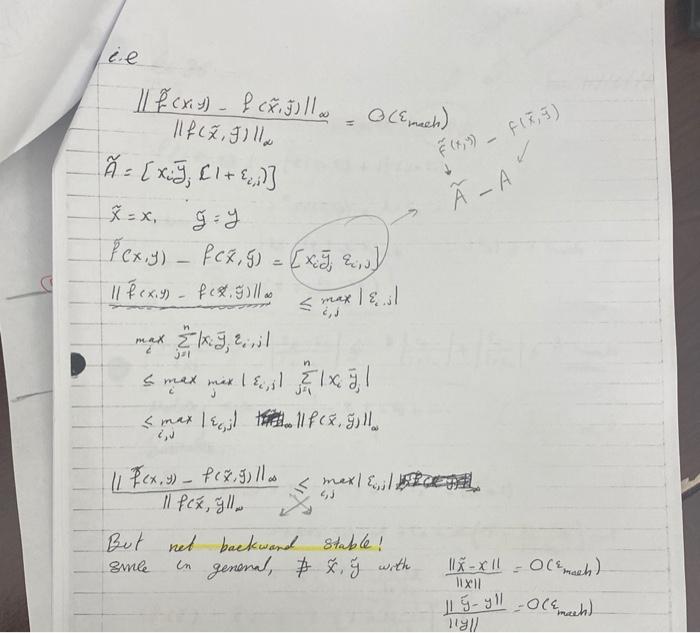 i.e
|| f̃(x,y) - f(x̃,ỹ)||∞ / ||f(x̃,ỹ)||∞ = O(ε_mach)
f̃(x,y) - f(x̃,ỹ)
Ã = [x_i ȳ_j (1 + ε_i,j)]
Ã - A
x̃ = x, ỹ = y
f̃(x,y) - f(x̃,ỹ) = [x_i ȳ_j ε_i,j]
|| f̃(x,y) - f(x̃,ỹ)||∞ ≤ max_i,j |ε_i,j|
max_i Σ_{j=1}^n |x_i ȳ_j ε_i,j|
≤ max_i max_j |ε_i,j| Σ_{j=1}^n |x_i ȳ_j|
≤ max_i,j |ε_i,j| ||f(x̃,ỹ)||∞
|| f̃(x,y) - f(x̃,ỹ)||∞ / || f(x̃,ỹ)||∞ ≤ max_i,j |ε_i,j|
But not backward stable!
since in general, ∄ x̃, ỹ with ||x̃-x|| / ||x|| = O(ε_mach)
||ỹ-y|| / ||y|| = O(ε_mach)